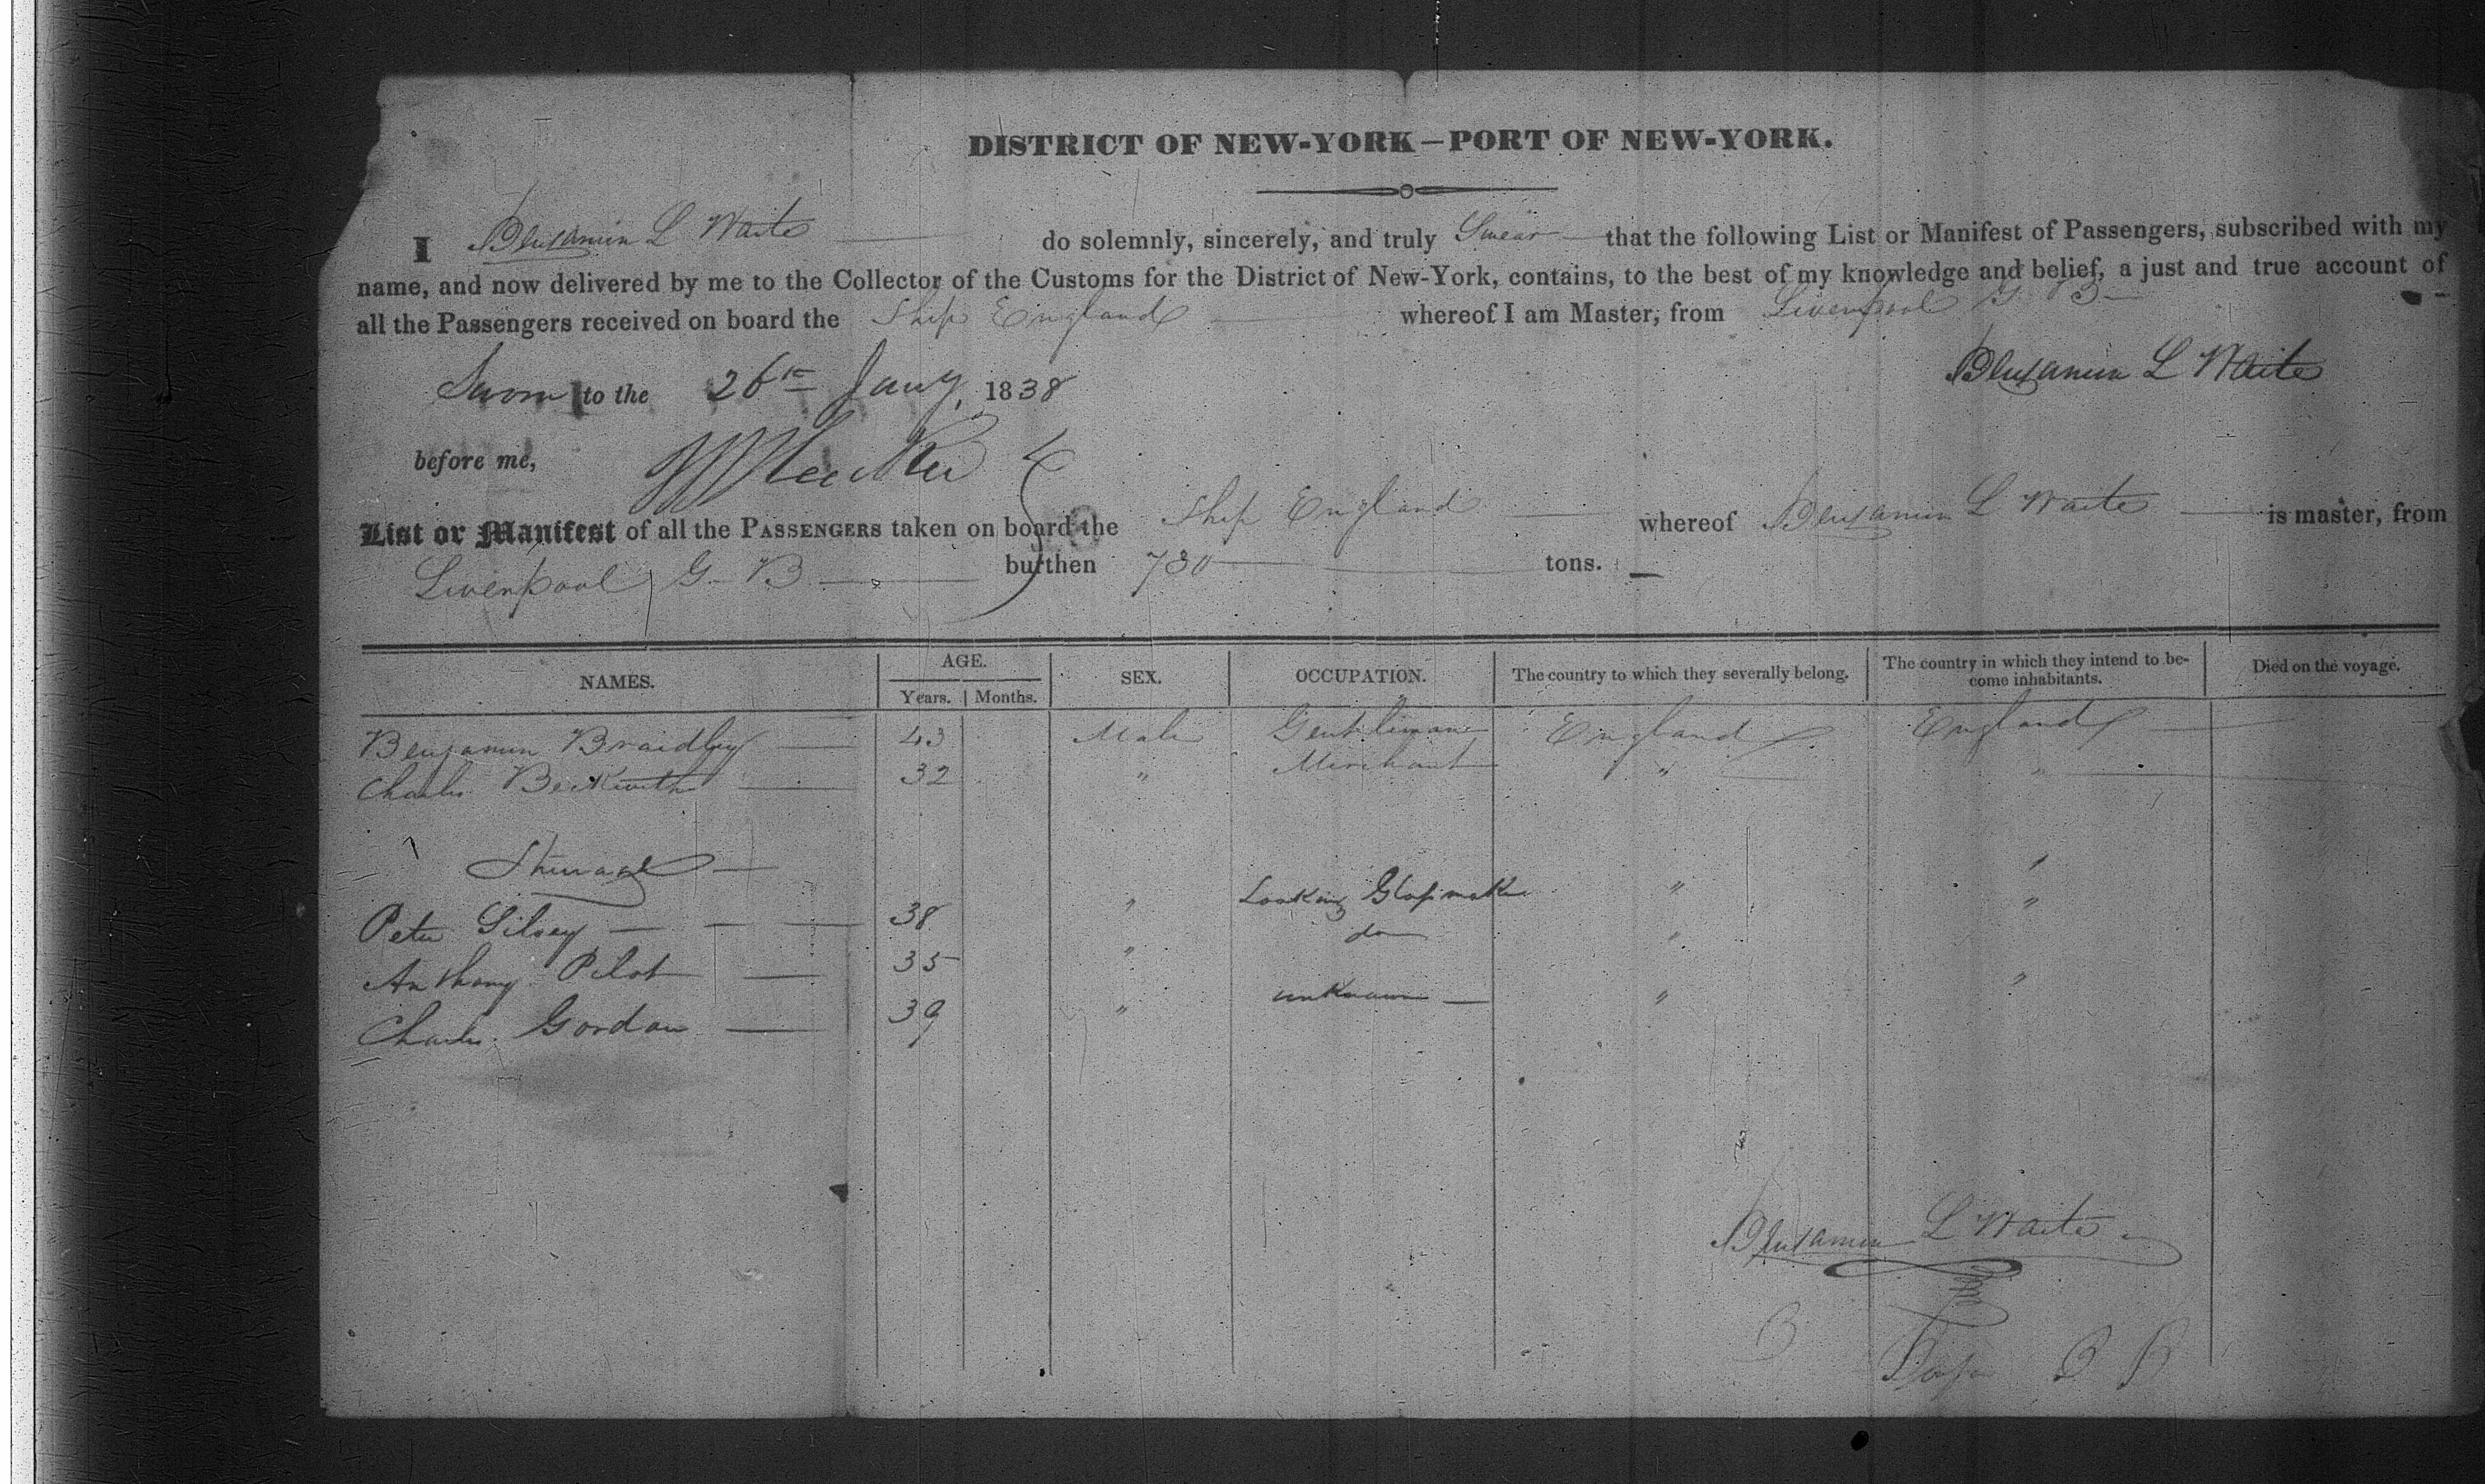 DISTRICT OF NEW-YORK—PORT OF NEW-YORK.
I Benjamin L Waite do solemnly, sincerely, and truly Swear that the following List or Manifest of Passengers, subscribed with my
name, and now delivered by me to the Collector of the Customs for the District of New-York, contains, to the best of my knowledge and belief, a just and true account of
all the Passengers received on board the Ship England whereof I am Master, from Liverpool G B
Benjamin L Waite
Sworn to the 26th Jany, 1838
before me,
List or Manifest of all the PASSENGERS taken on board the Ship England whereof Benjamin L Waite is master, from
Liverpool G B burthen 730 tons.
NAMES. AGE. Years. Months. SEX. OCCUPATION. The country to which they severally belong. The country in which they intend to become inhabitants. Died on the voyage.
Benjamin Braidley 43 Male Gentleman England England
Charles Beckwith 32 " Merchant " "
Steerage
Peter Gilsey 38 " Looking Glass maker " "
Anthony Pilot 35 " do " "
Charles Gordon 39 " unknown " "
Benjamin L Waite